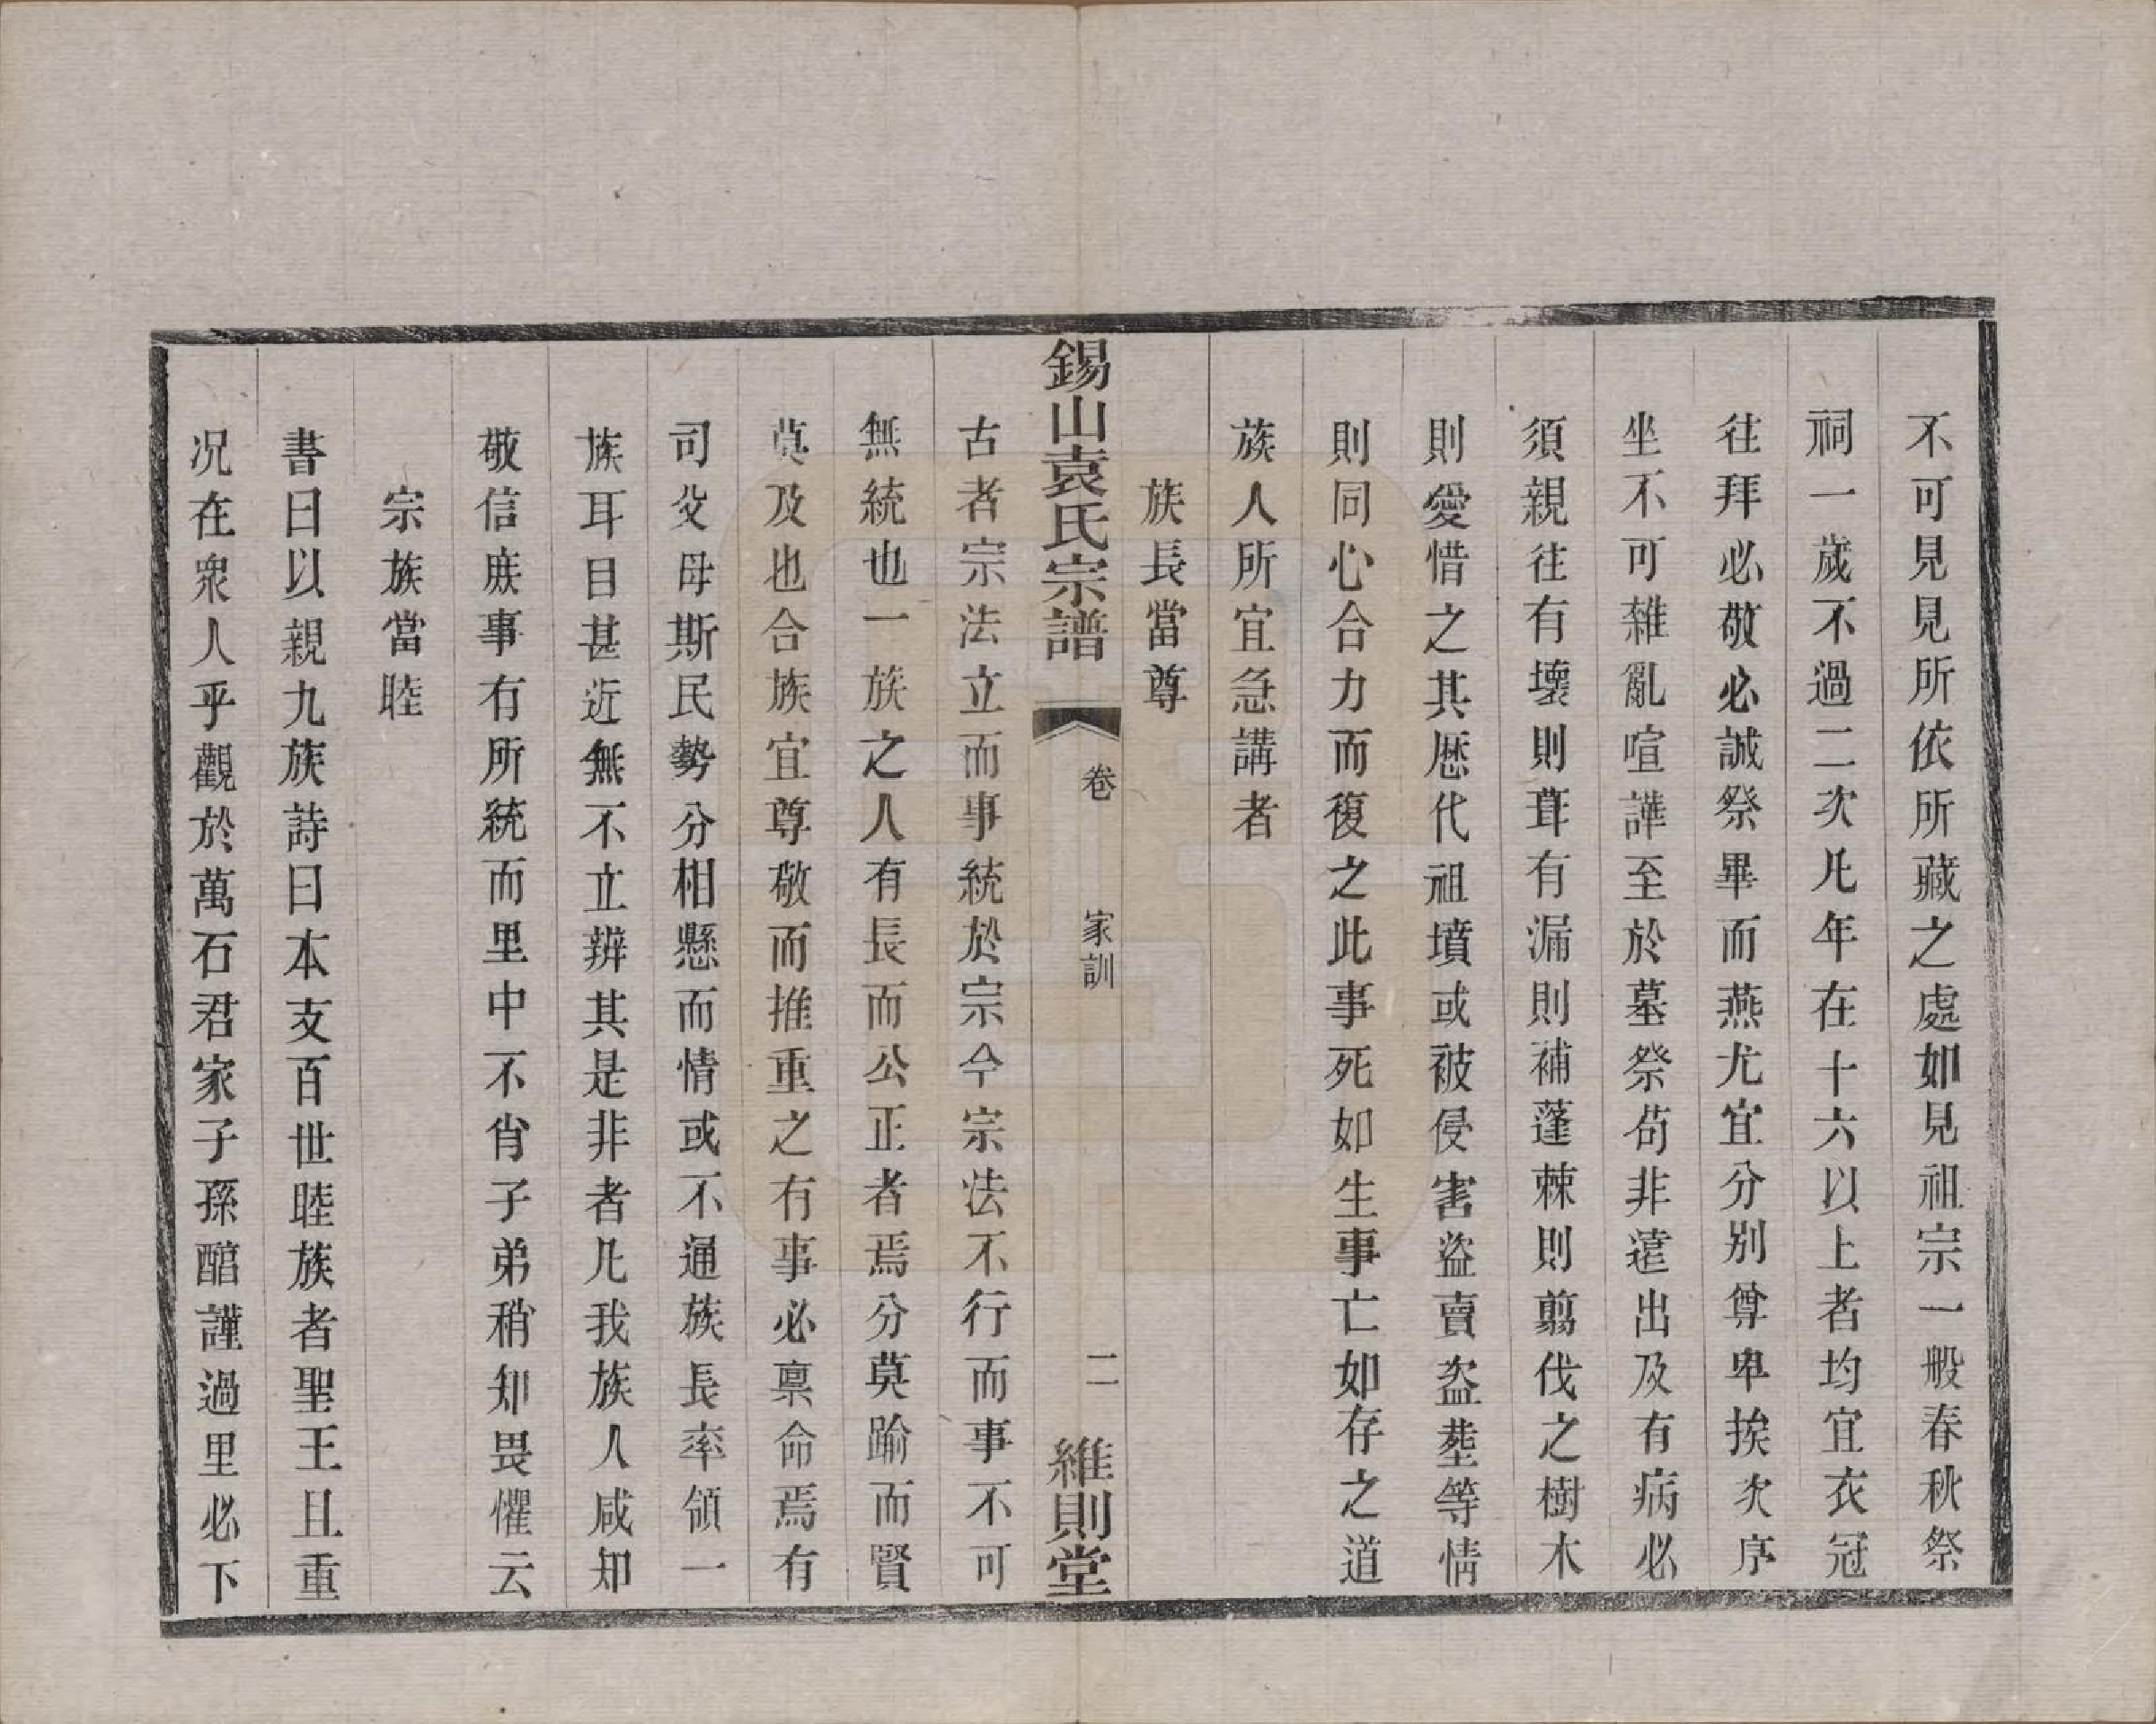 不可見見所依所藏之處如見祖宗一般春秋祭
祠一歲不過二次凡年在十六以上者均宜衣冠
往拜必敬必誠祭畢而燕尤宜分别尊卑挨次序
坐不可雜亂喧譁至於墓祭茍非遠出及有病必
須親往有壞則葺有漏則補蓬棘則剪伐之樹木
則愛惜之其歷代祖墳或被侵害盜賣盜塟等情
則同心合力而復之此事死如生事亡如存之道
族人所宜急講者
族長當尊
錫山袁氏宗譜
卷
家訓
二
維則堂
古者宗法立而事統於宗今宗法不行而事不可
無統也一族之人有長而公正者焉分莫踰而賢
莫及也合族宜尊敬而推重之有事必禀命焉有
司父母斯民勢分相懸而情或不通族長率領一
族耳目甚近無不立辨其是非者凡我族人咸知
敬信庶事有所統而里中不肖子弟稍知畏懼云
宗族當睦
書曰以親九族詩曰本支百世睦族者聖王且重
况在衆人乎觀於萬石君家子孫醕謹過里必下